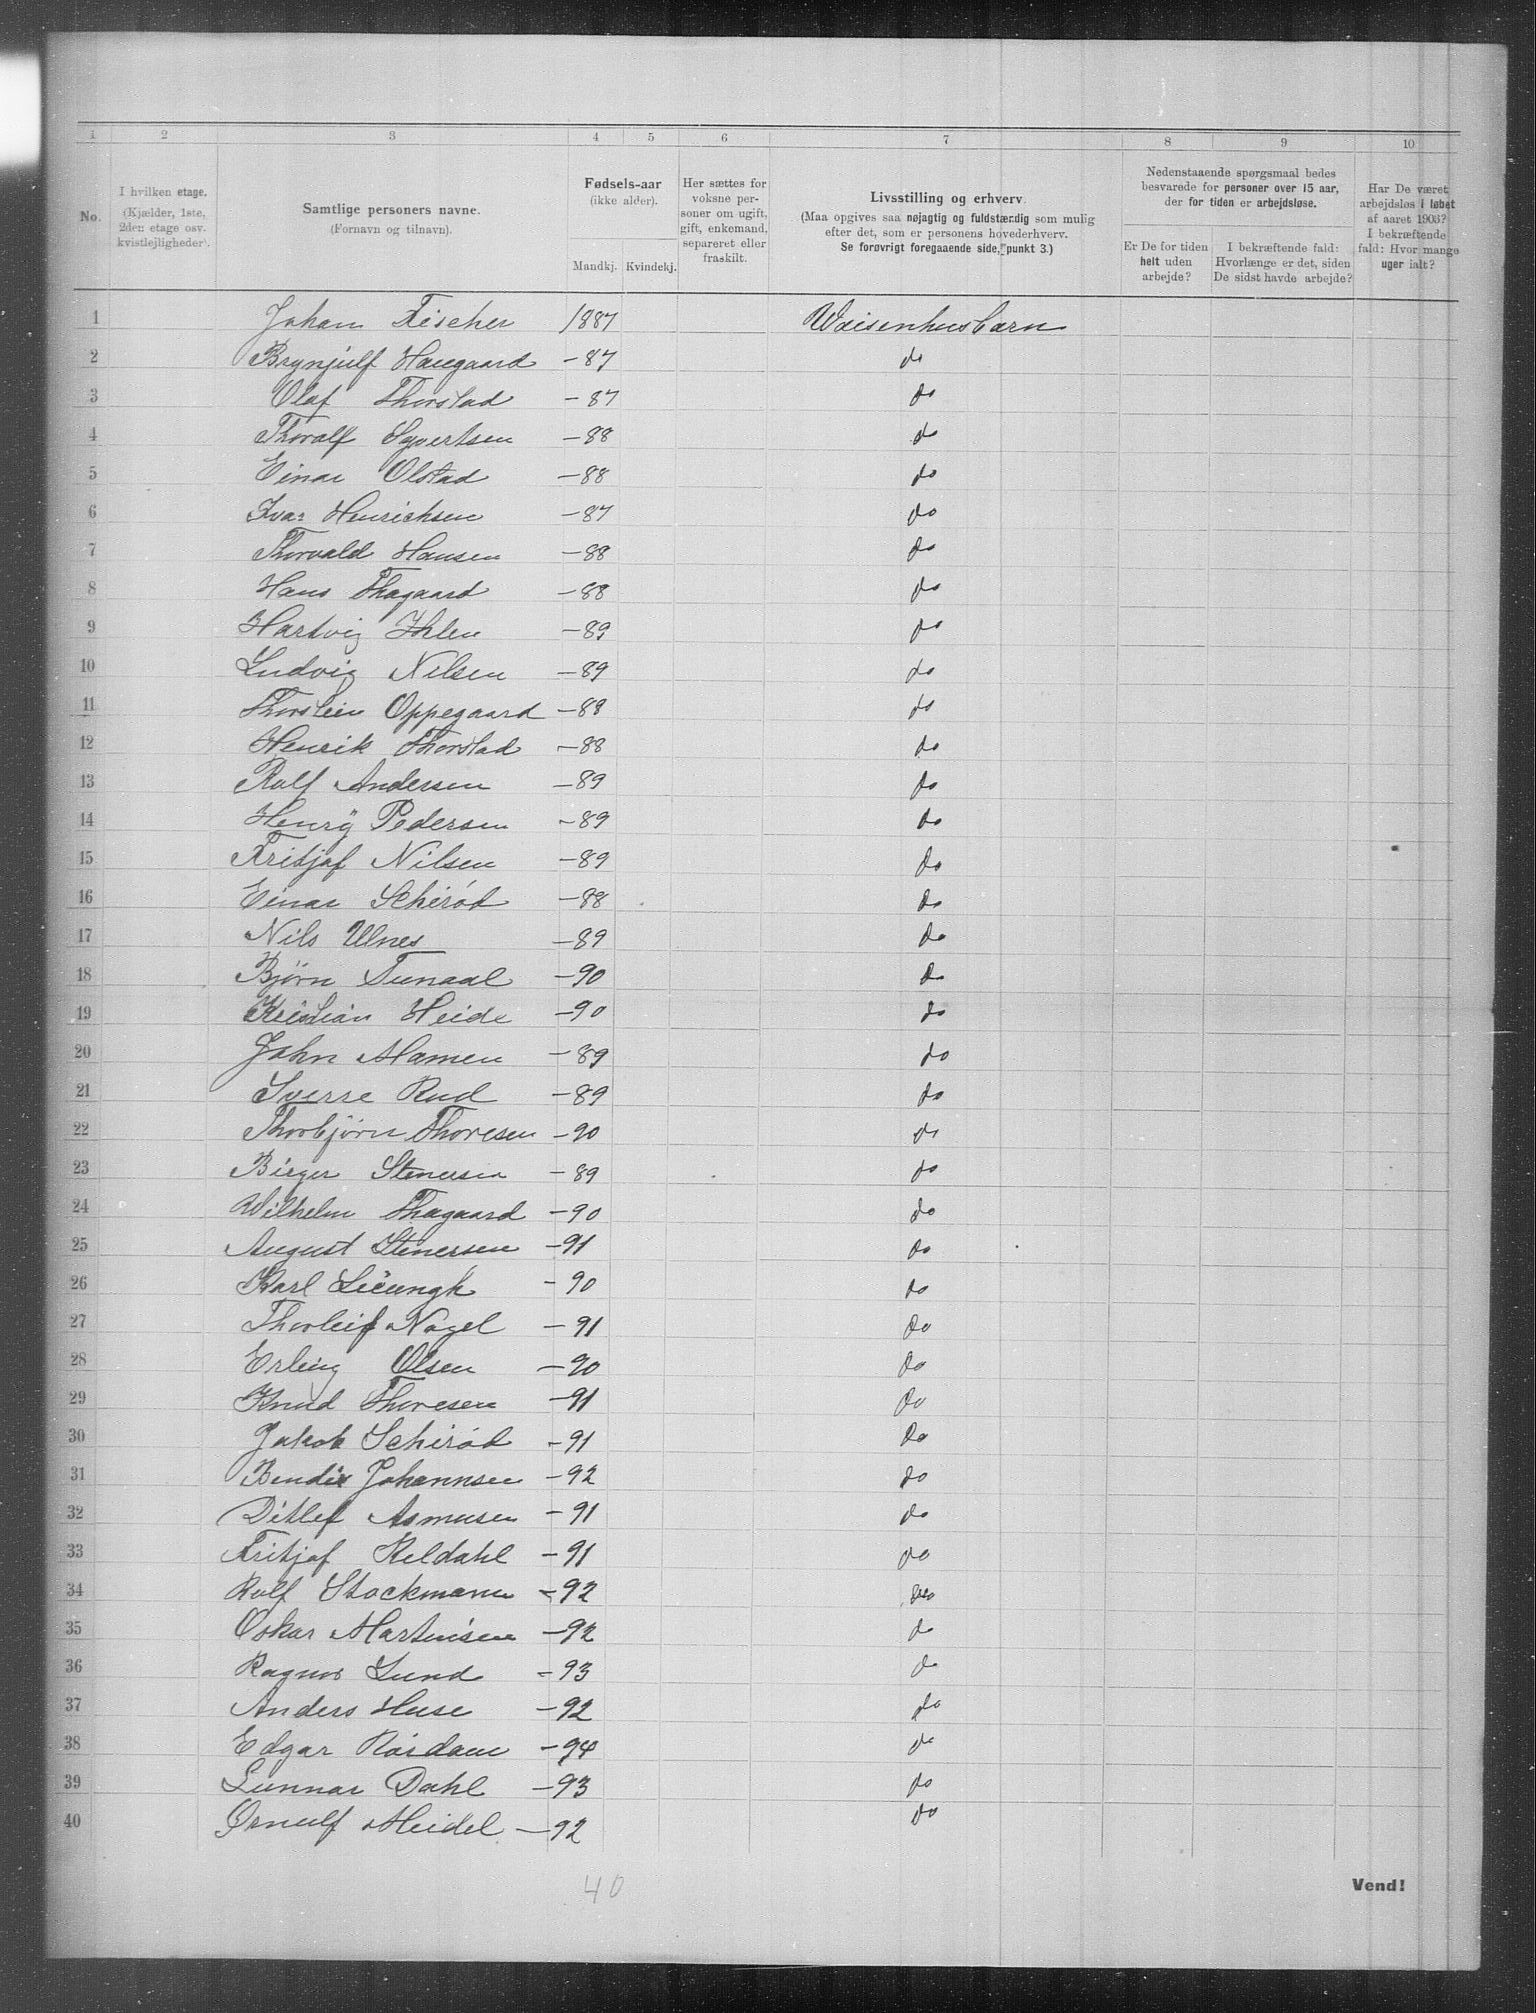 1 2 3 4 5 6 7 8 9 10
No.
I hvilken etage.
(Kjælder, 1ste,
2den etage osv.
kvistlejligheder).
Samtlige personers navne.
(Fornavn og tilnavn).
Fødsels-aar
(ikke alder).
Mandkj. Kvindekj.
Her sættes for
voksne per-
soner om ugift,
gift, enkemand,
separeret eller
fraskilt.
Livsstilling og erhverv.
(Maa opgives saa nøjagtig og fuldstærdig som mulig
efter det, som er personens hovederhverv.
Se forøvrigt foregaaende side, punkt 3.)
Nedenstaaende spørgsmaal bedes
besvarede for personer over 15 aar,
der for tiden er arbejdsløse.
Er De for tiden
helt uden
arbejde?
I bekræftende fald:
Hvorlænge er det, siden
De sidst havde arbejde?
Har De været
arbejdsløs i løbet
af aaret 1903?
I bekræftende
fald: Hvor mange
uger ialt?
1 Johan Fischer 1887 Waisenhusbarn
2 Brynjulf Haugaard -87 do
3 Olaf Thorstad -87 do
4 Thoralf Syvertsen -88 do
5 Einar Olstad -88 do
6 Ivar Henrichsen -87 do
7 Thorvald Hansen -88 do
8 Hans Thagaard -88 do
9 Hartvig Ihlen -89 do
10 Ludvig Nilsen -89 do
11 Thorstein Oppegaard -88 do
12 Henrik Thorstad -88 do
13 Rolf Andersen -89 do
14 Henry Pedersen -89 do
15 Fritjof Nilsen -89 do
16 Einar Schirød -88 do
17 Nils Ulnes -89 do
18 Bjørn Tunaal -90 do
19 Kristian Heide -90 do
20 John Mamen -89 do
21 Sverre Rud -89 do
22 Thorbjørn Thoresen -90 do
23 Birger Stenersen -89 do
24 Wilhelm Thagaard -90 do
25 August Stenersen -91 do
26 Karl -90 do
27 Thorleif Nagel -91 do
28 Erling Olsen -90 do
29 Knud Thoresen -91 do
30 Jakob Schirød -91 do
31 Bendix Johannsen -92 do
32 Ditlef Asmusen -91 do
33 Fritjof Keldahl -91 do
34 Rolf Stockmann -92 do
35 Oskar Martinsen -92 do
36 Ragnar Lund -93 do
37 Anders Huse -92 do
38 Edgar Røisdam -94 do
39 Gunnar Dahl -93 do
40 Ørnulf Meidel -92 do
40
Vend!